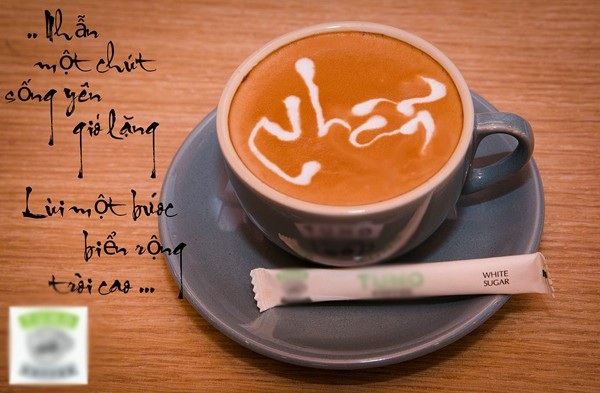 .. Nhẫn
một chút
sống yên
gió lặng
Lùi một bước
biển rộng
trời cao ...
Nhẫn
WHITE
SUGAR